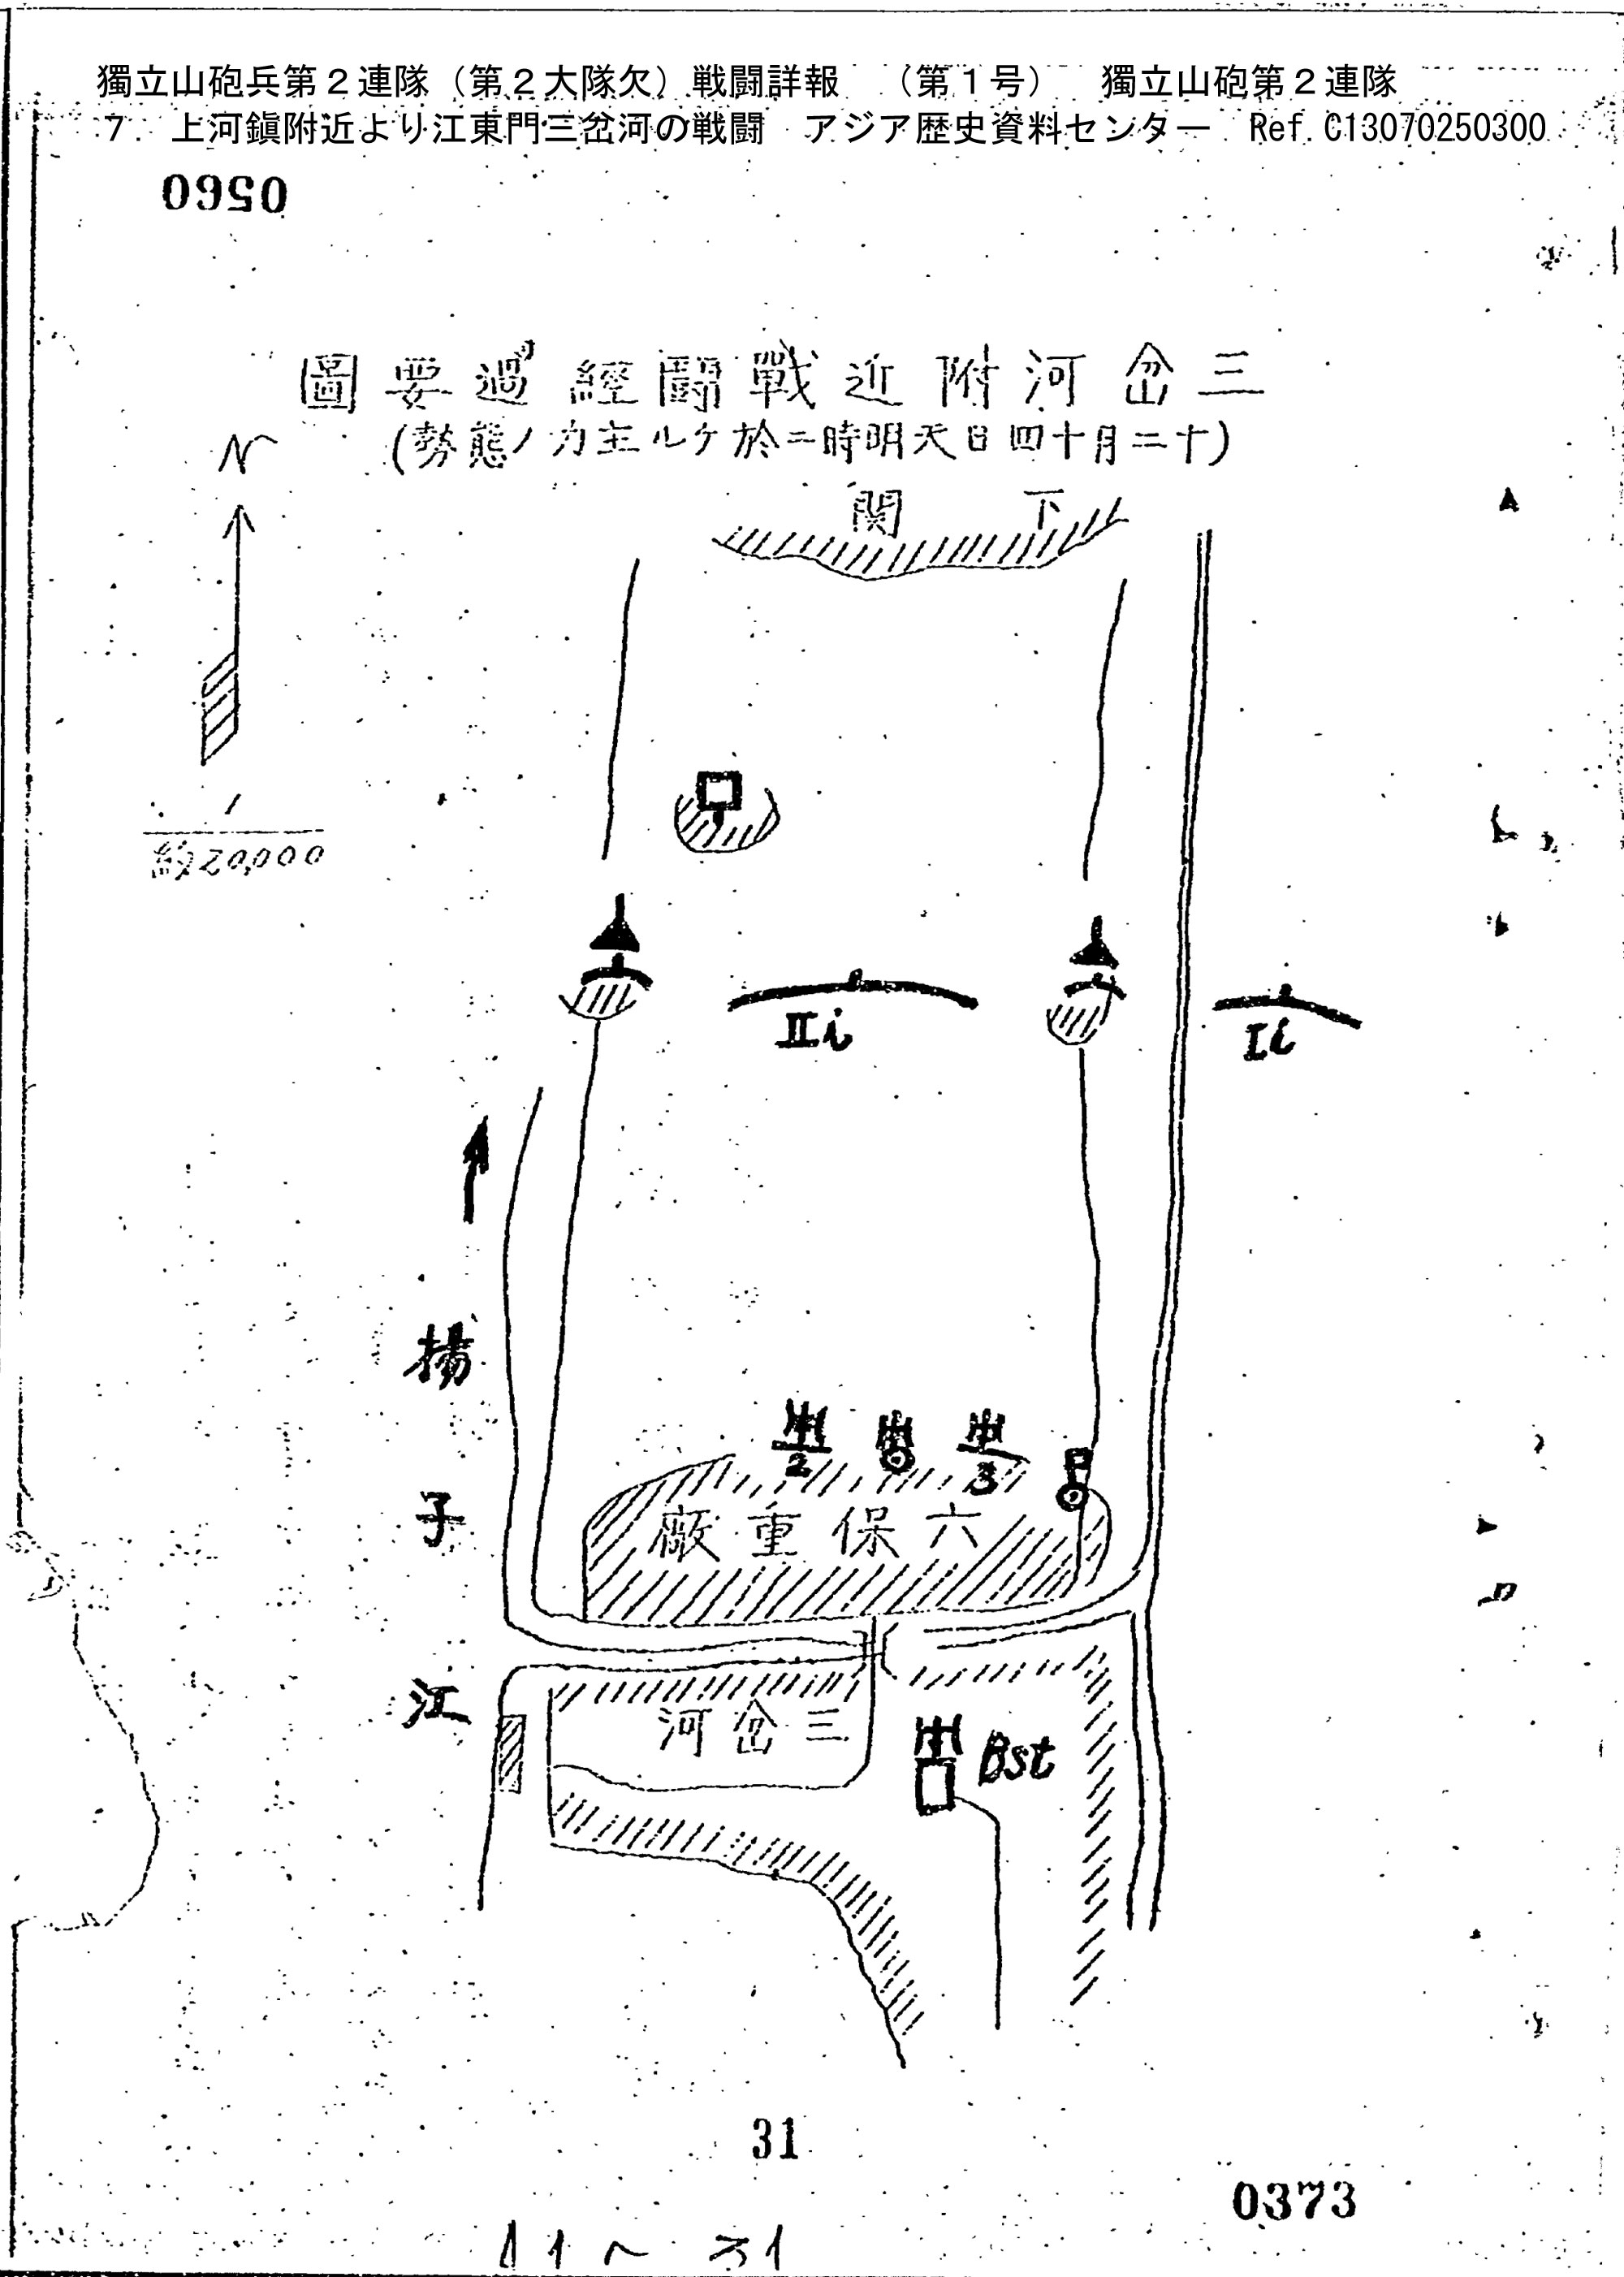 獨立山砲兵第２連隊（第２大隊欠）戦闘詳報　（第１号）　獨立山砲第２連隊
７．上河鎭附近より江東門三岔河の戦闘　アジア歴史資料センター　Ref.C13070250300
0560
三岔河附近戰鬪經過要圖
(十二月十四日天明時ニ於ケル主力ノ態勢)
N
下関
1
約20,000
IIi
Ii
揚子江
2
3
六保重廠
三岔河
Bst
31
0373